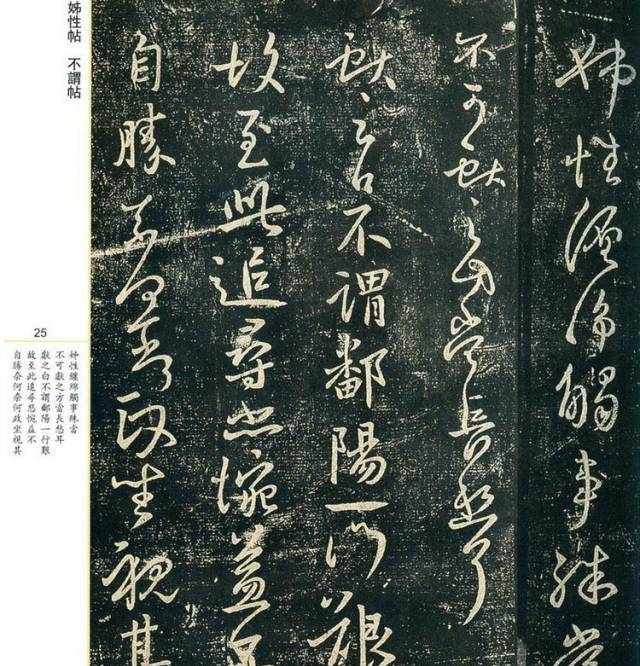 姊性纏綿觸事殊當
不可獻之方當長愁耳
獻之白不謂鄱陽一門艱
故至此追尋悲惋益不
自勝奈何奈何政坐視其
姊性帖 不謂帖
25
姊性纏綿觸事殊當
不可獻之方當長愁耳
獻之白不謂鄱陽一行艱
故至此追尋悲惋益不
自勝奈何奈何政坐視其